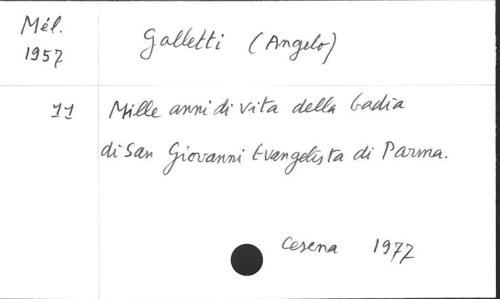 Mél.
1957
Galletti (Angelo)
11
Mille anni di vita della badia
di San Giovanni Evangelista di Parma.
Cesena 1977